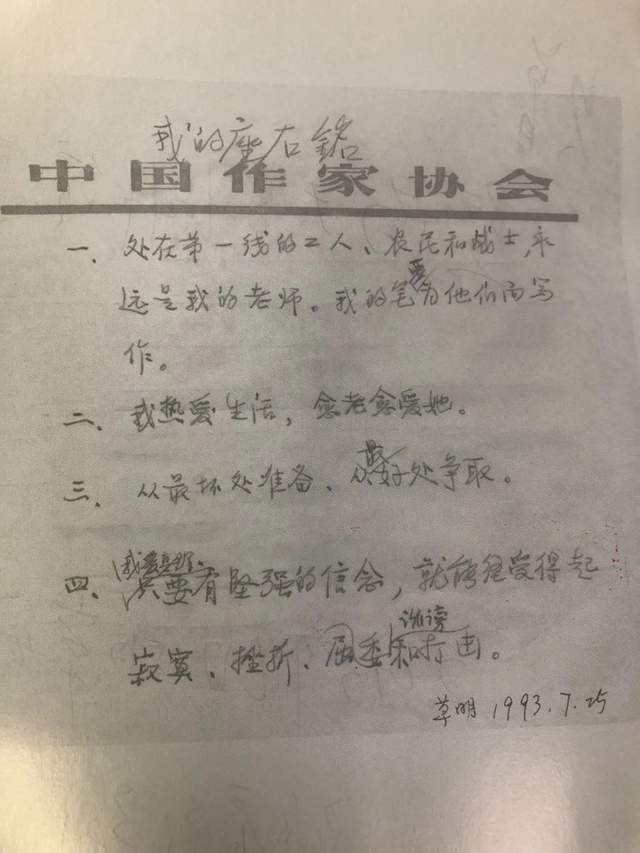 我的座右銘
中国作家协会
一、处在第一线的工人、农民和战士,永
远是我的老师。我的笔要为他们而写
作。
二、我热爱生活，愈老愈爱她。
三、从最坏处准备、从最好处争取。
四、我爱真理。只要有坚强的信念，就能经受得起
寂寞、挫折、屈委诽谤和打击。
草明 1993.7.25